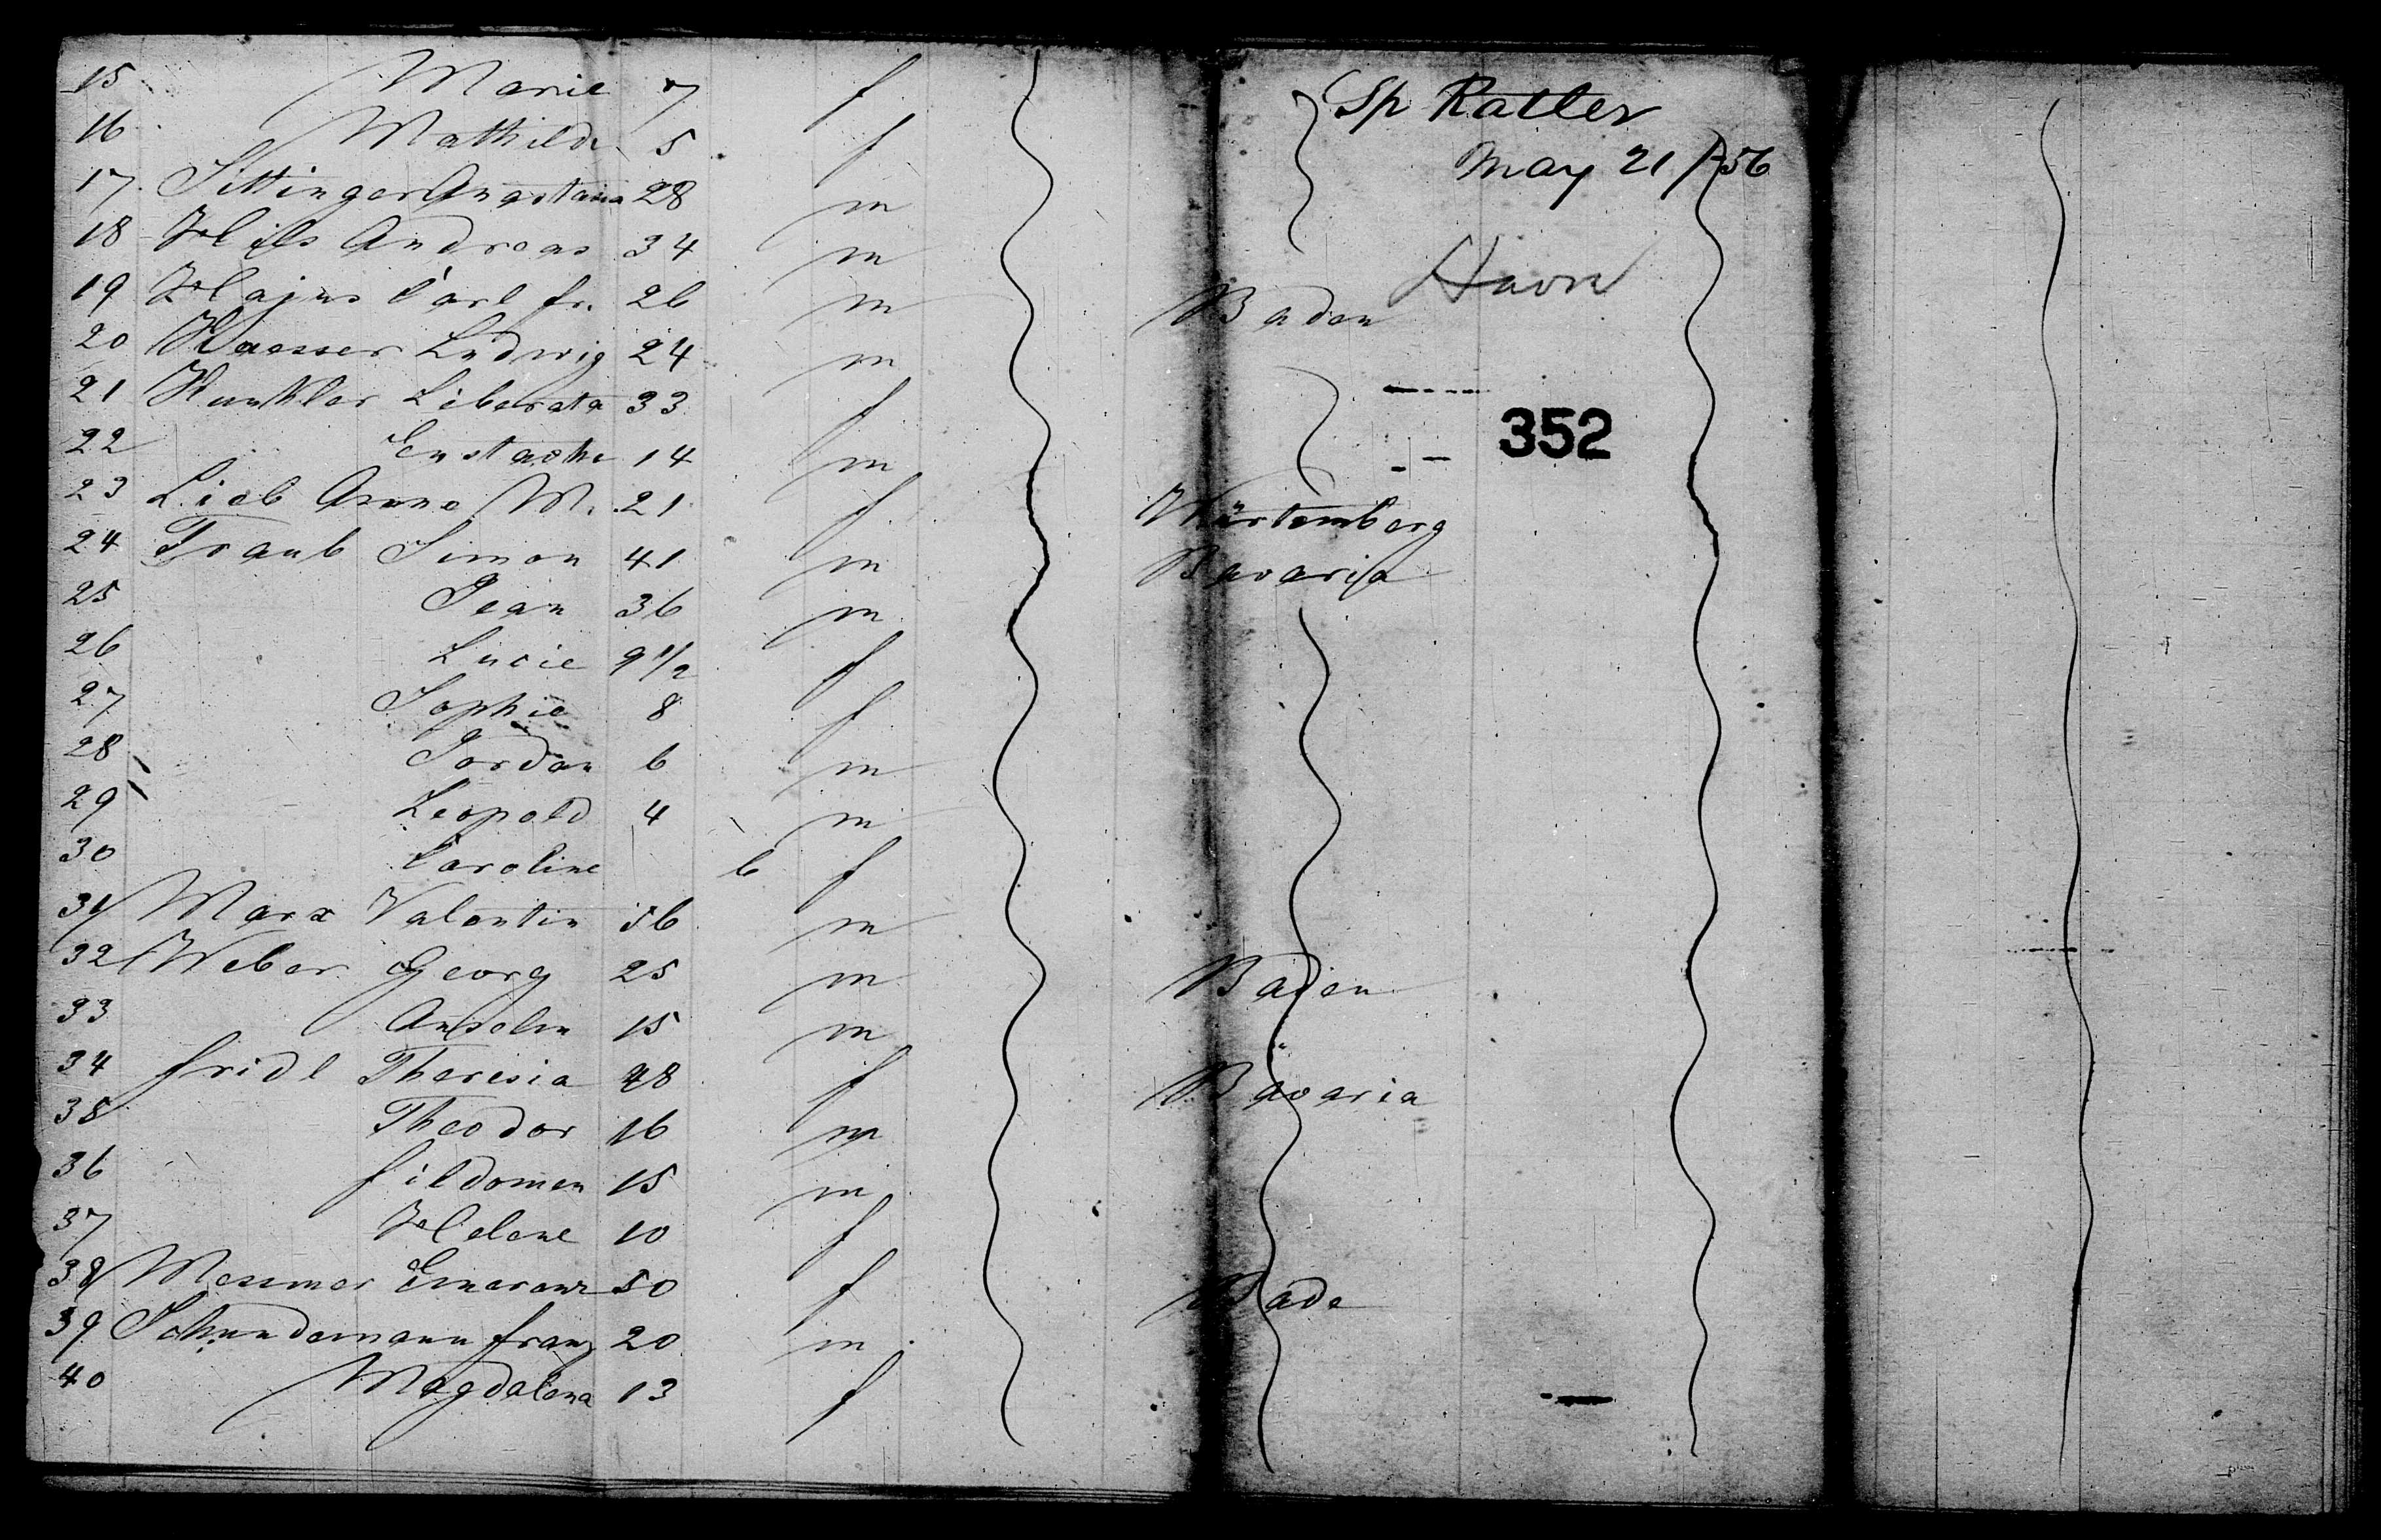 Sp Ratler
May 21/56
Havre
352
15 Marie 7 f
16 Mathilde 5 f
17 Sittinger Anastasia 28 m
18 Hils Andreas 34 m
19 Hajns Carl fr. 26 m Baden
20 Waesser Ludwig 24 m
21 Kunkler Liberata 33 f
22 Eustache 14 m
23 Lieb Anne M. 21 f Würtemberg
24 Traub Simon 41 m Bavaria
25 Jean 36 m
26 Lucie 9 1/2 f
27 Sophie 8 f
28 Jordan 6 m
29 Leopold 4 m
30 Caroline 6 f
31 Marx Valentin 56 m
32 Weber Georg 25 m Baden
33 Anselm 15 m
34 fridl Theresia 48 f Bavaria
35 Theodor 16 m
36 fildomen 15 m
37 Helene 10 f
38 Messmer Emeranz 50 f Bade
39 Schundemann franz 20 m
40 Magdalena 13 f